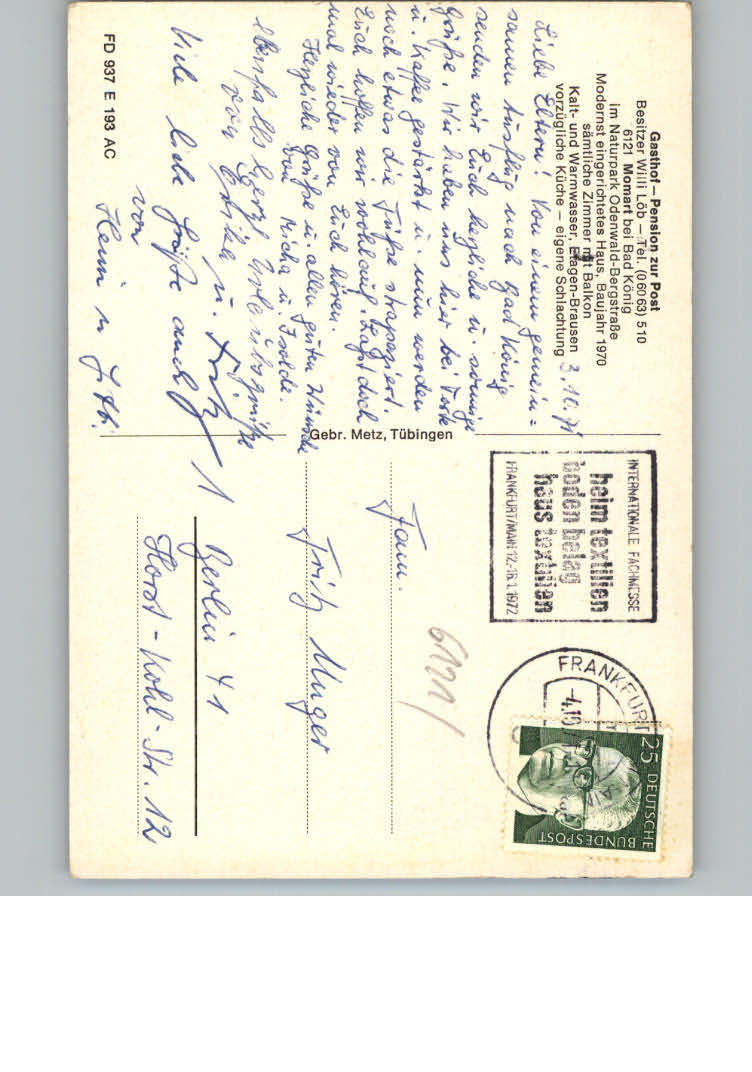 Gasthof – Pension zur Post
Besitzer Willi Löb – Tel. (06063) 510
6121 Momart bei Bad König
im Naturpark Odenwald-Bergstraße
Modernst eingerichtetes Haus, Baujahr 1970
sämtliche Zimmer mit Balkon
Kalt- und Warmwasser, Etagen-Brausen
vorzügliche Küche – eigene Schlachtung
3.10.71
Liebe Eltern! Von einem gemein-
samen Ausflug nach Bad König
senden wir Euch herzliche u. sonnige
Grüße. Wir haben uns hier bei Torte
u. Kaffee gestärkt u. nun werden
noch etwas die Füße strapaziert.
Euch hoffen wir wohlauf. Laßt doch
mal wieder von Euch hören.
Herzliche Grüße u. allen guten Wünsche
von Micha u. Isolde.
Ebenfalls herzl. Urlaubsgrüße
von Erika u. Fritz
Viele liebe Grüße auch
von
Heini u
FD 937 E 193 AC
Gebr. Metz, Tübingen
INTERNATIONALE FACHMESSE
heimtextilien
bodenbelag
haustextilien
FRANKFURT/MAIN 12.-16.1.1972
FRANKFURT
-4.10
25 DEUTSCHE
BUNDESPOST
6121/
Fam.
Fritz Unger
1 Berlin 41
Horst-Kohl-Str. 12